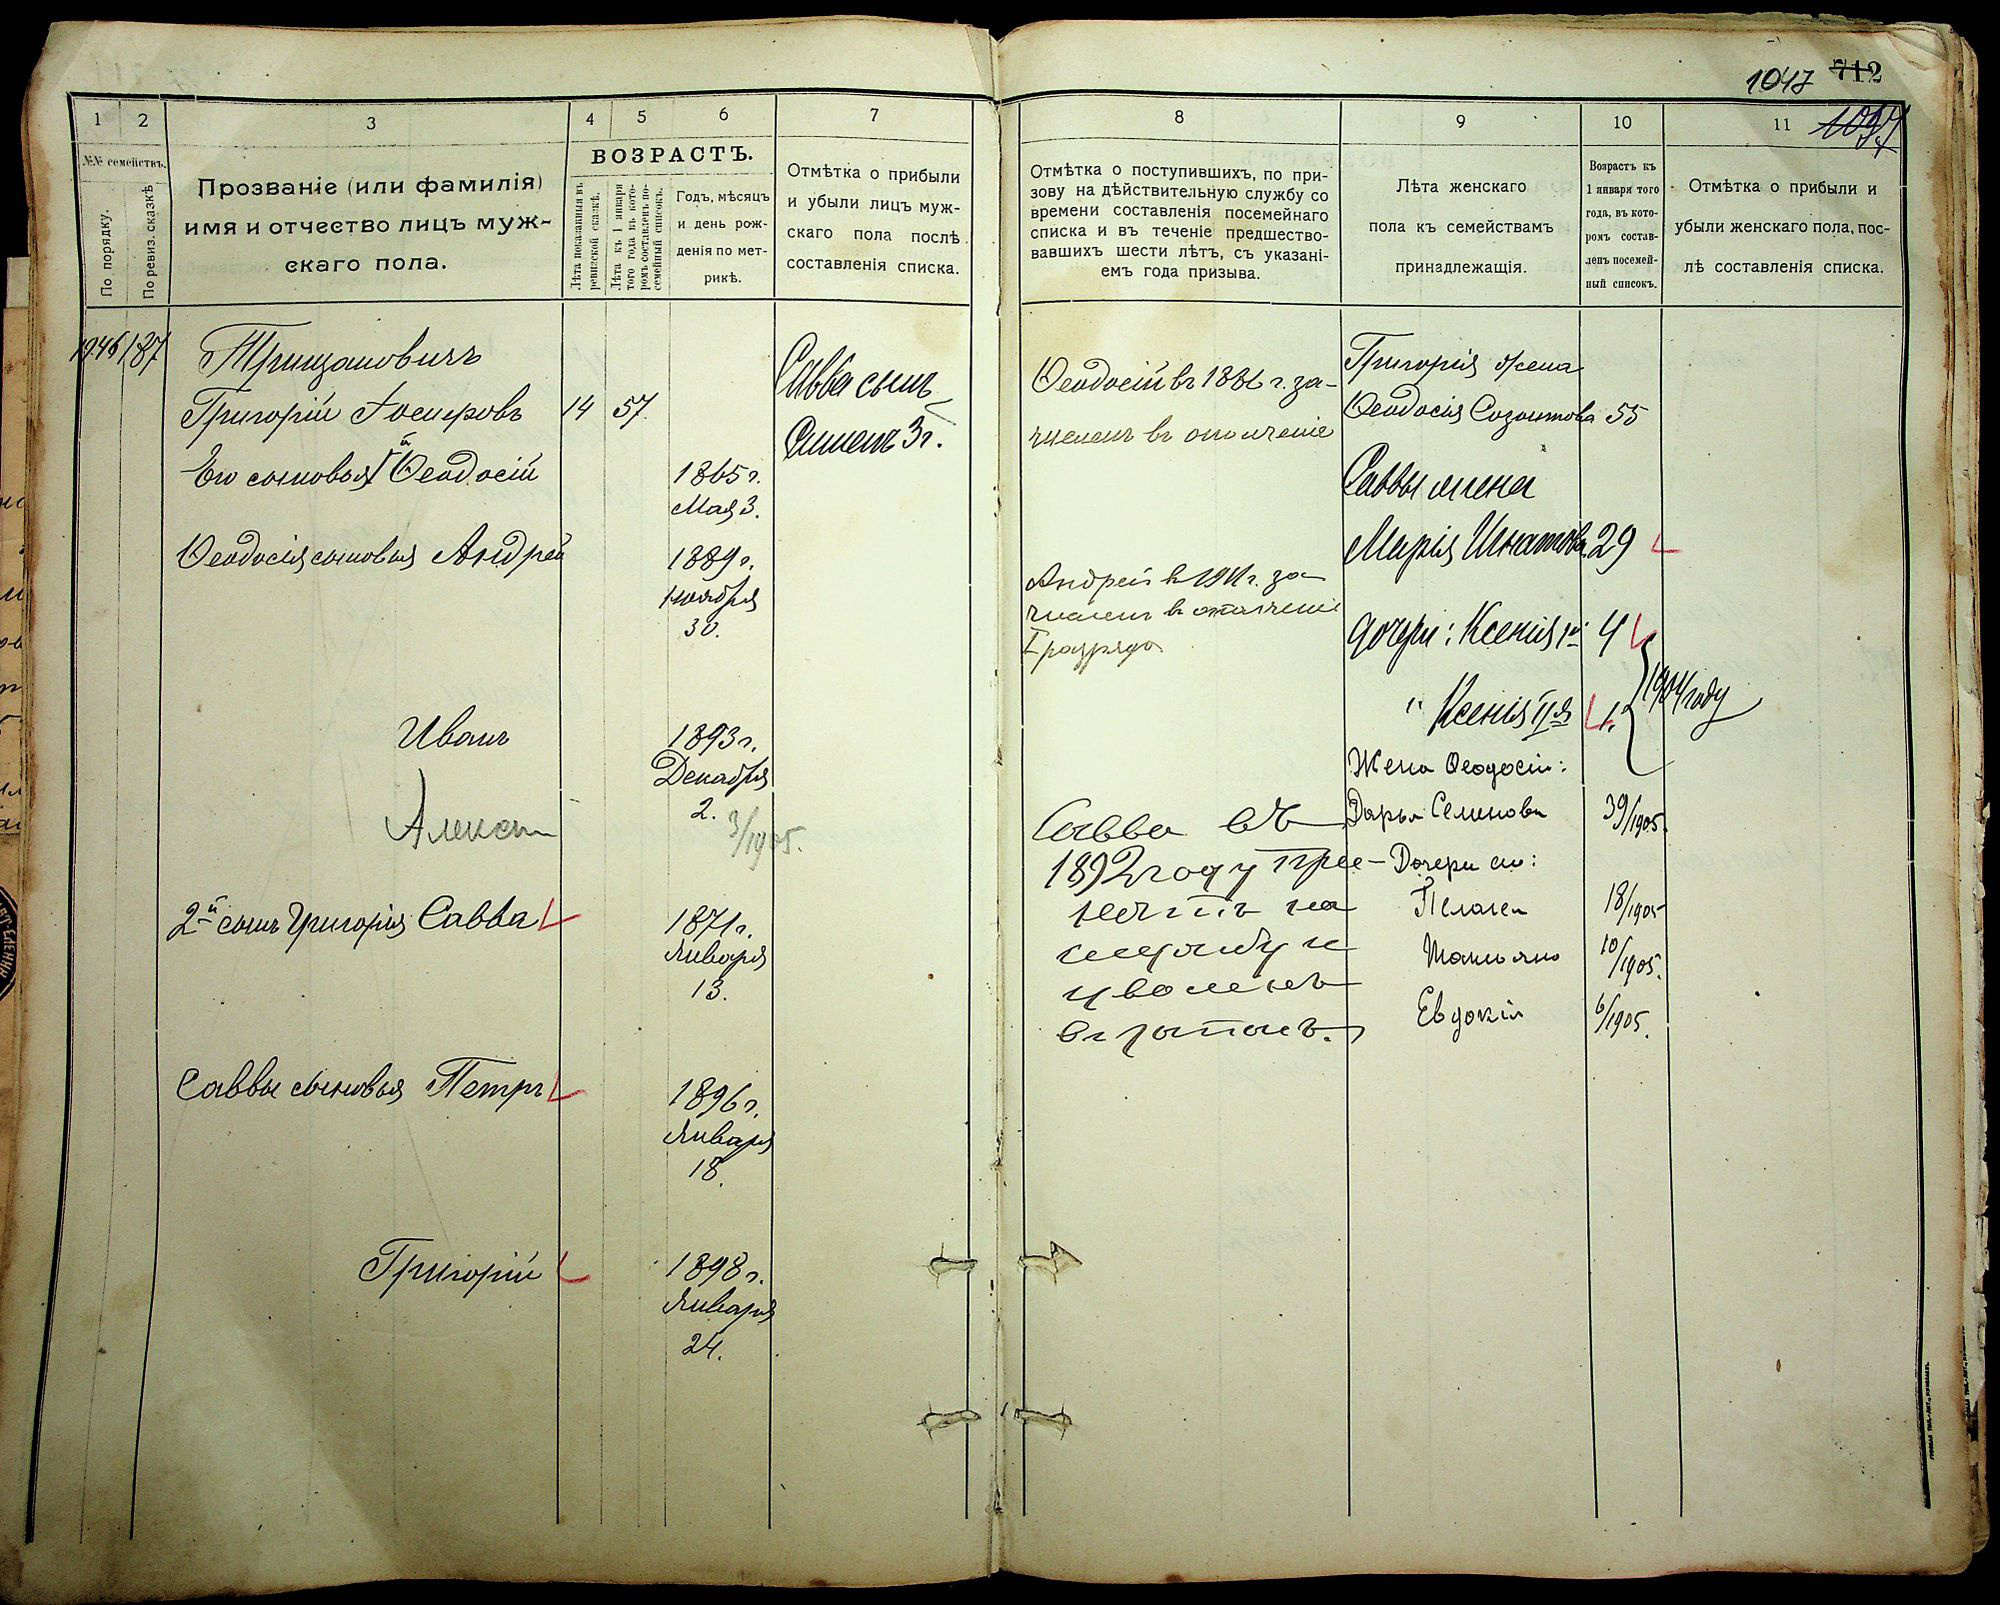 1047 712
1 2 3 4 5 6 7
№№ семействъ.
По порядку.
По ревиз. сказкѣ
Прозваніе (или фамилія)
имя и отчество лицъ муж-
скаго пола.
ВОЗРАСТЪ.
Лѣта показанныя въ
ревизской сказкѣ.
Лѣта къ 1 января
того года въ кото-
ромъ составленъ по-
семейный списокъ.
Годъ, мѣсяцъ
и день рож-
денія по мет-
рикѣ.
Отмѣтка о прибыли
и убыли лицъ муж-
скаго пола послѣ
составленія списка.
1946 187
Григорій Іосифовъ 14 57.
Его сыновья Ѳеодосій
1865 г.
Мая 3.
Ѳеодосія сыновья Андрей
1889 г.
ноября
30.
Иванъ
1893 г.
Декабря
2.
Алексѣй
3/1905.
2й сынъ Григорія Савва
1871 г.
Января
13.
Саввы сыновья Петръ
1896 г.
Января
18.
Григорій
1898 г.
Января
24.
Савва сынъ
3 г.
8 9 10 11
Отмѣтка о поступившихъ, по при-
зову на дѣйствительную службу со
времени составленія посемейнаго
списка и въ теченіе предшество-
вавшихъ шести лѣтъ, съ указані-
емъ года призыва.
Лѣта женскаго
пола къ семействамъ
принадлежащія.
Возрастъ къ
1 января того
года, въ кото-
ромъ состав-
ленъ посемей-
ный списокъ.
Отмѣтка о прибыли и
убыли женскаго пола, пос-
лѣ составленія списка.
Ѳеодосій въ 1886 г. за-
численъ въ ополченіе
Андрей въ 1911 г. за-
численъ въ ополченіе
I разряда
Савва въ
1892 году
на
и
уволенъ
Григорія жена
Ѳеодосія Созонтова 55
Саввы жена
Марія Игнатова 29
дочери: Ксенія 1я 4
" Ксенія IIя 1.
1904 году
Жена Ѳеодосія:
Дарья Семенова 39/1905.
Дочери его:
Пелагея 18/1905
Татьяна 10/1905.
Евдокія 6/1905.